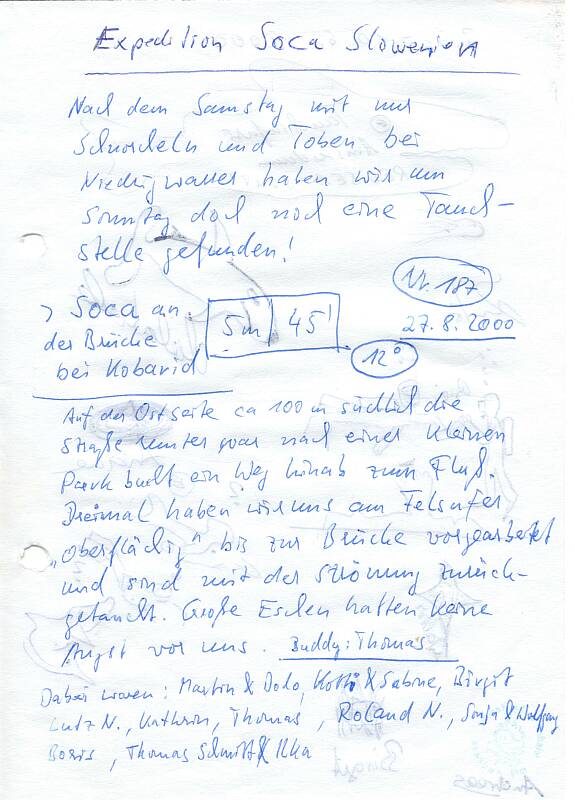 Expedition Soca Slowenien
Nach dem Samstag mit nur
Schnorcheln und Toben bei
Niedrigwasser haben wir am
Sonntag doch noch eine Tauch-
stelle gefunden!
> Soca an
der Brücke
bei Kobarid
5m 45'
Nr. 187
27.8.2000
12°
Auf der Ostseite ca 100 m südlich die
Straße runter war nach einer kleinen
Parkbucht ein Weg hinab zum Fluß.
Dreimal haben wir uns am Felsufer
"oberflächig" bis zur Brücke vorgearbeitet
und sind mit der Strömung zurück-
getaucht. Große Eschen hatten keine
Angst vor uns. Buddy: Thomas
Dabei waren: Martin & Dolo, & Sabine, Birgit
Lutz N., Kathrin, Thomas, Roland N., Sonja & Wolfgang
Boris, Thomas Schmitt & Ilka
Birgit
Andreas